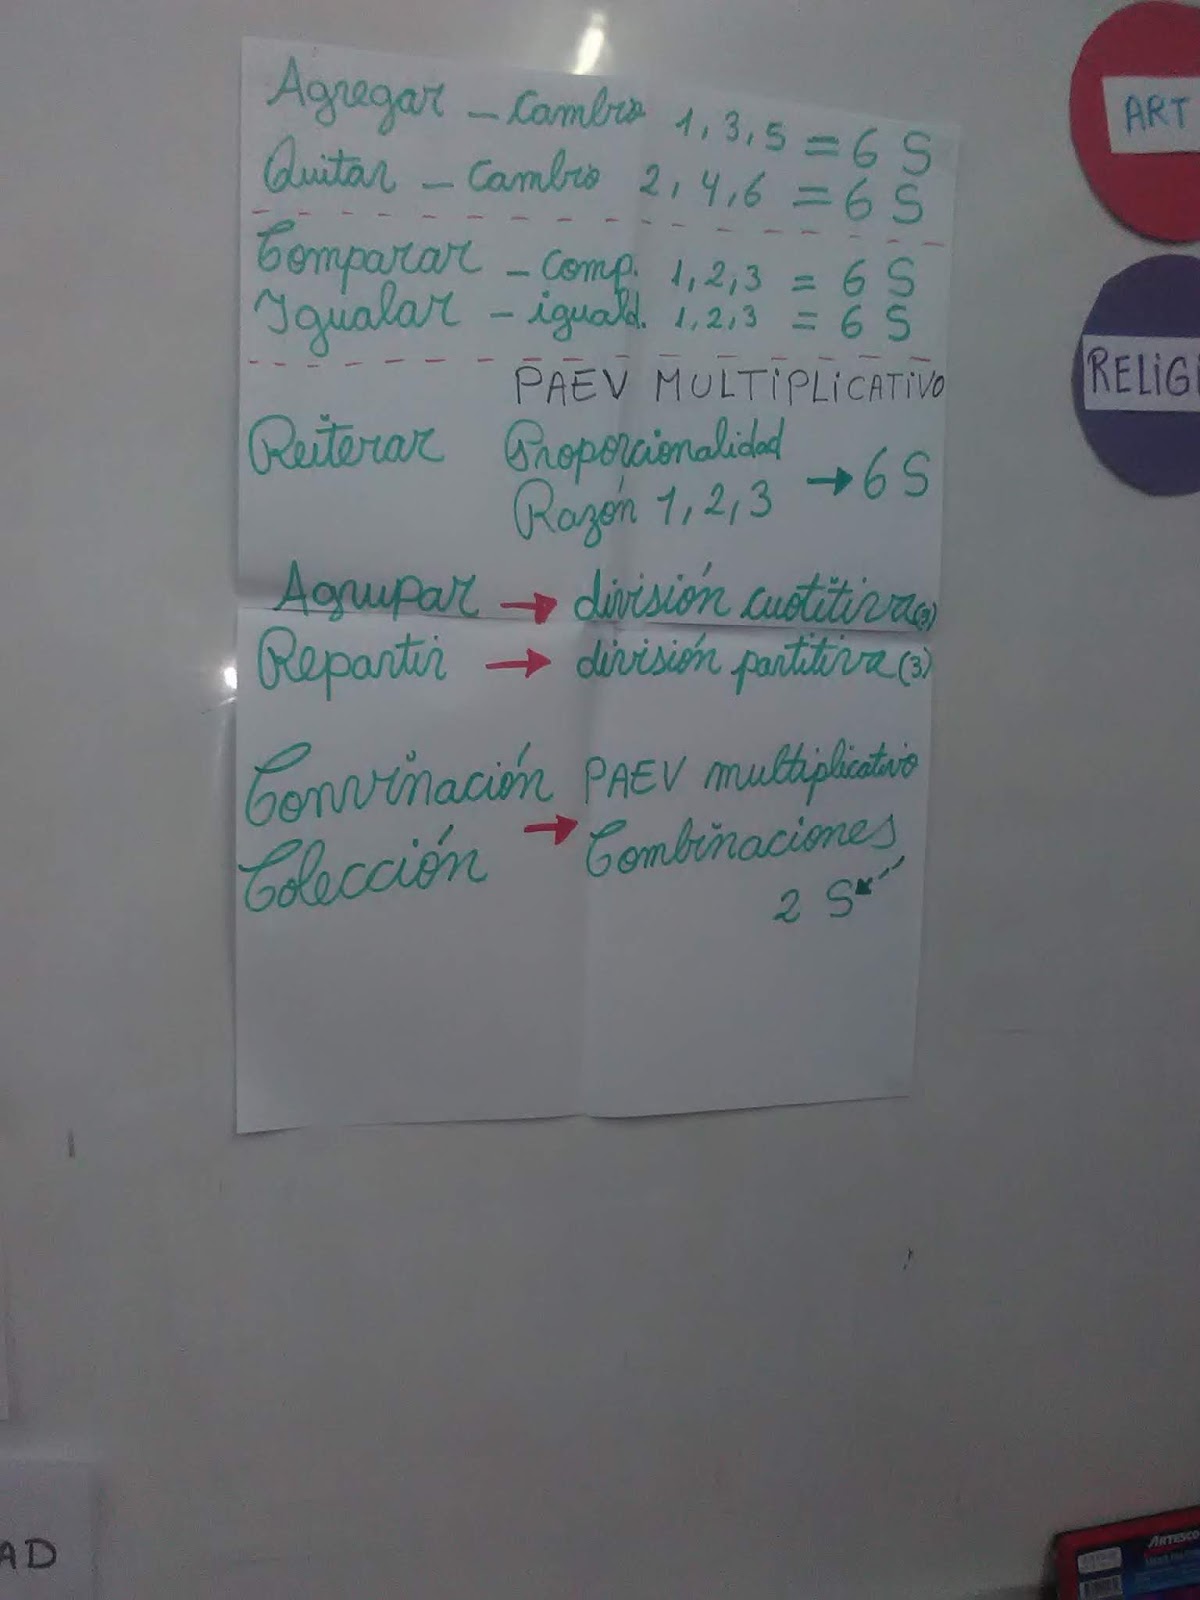 Agregar - cambio 1, 3, 5 = 6 S
Quitar - cambio 2, 4, 6 = 6 S
Comparar - comp. 1, 2, 3 = 6 S
Igualar - iguald. 1, 2, 3 = 6 S
PAEV MULTIPLICATIVO
Reiterar Proporcionalidad
Razón 1, 2, 3 → 6 S
Agrupar → división cuotitiva (3)
Repartir → división partitiva (3)
Convinación PAEV multiplicativo
Colección → Combinaciones
2 S
ART
RELIGI
AD
ARTESCO